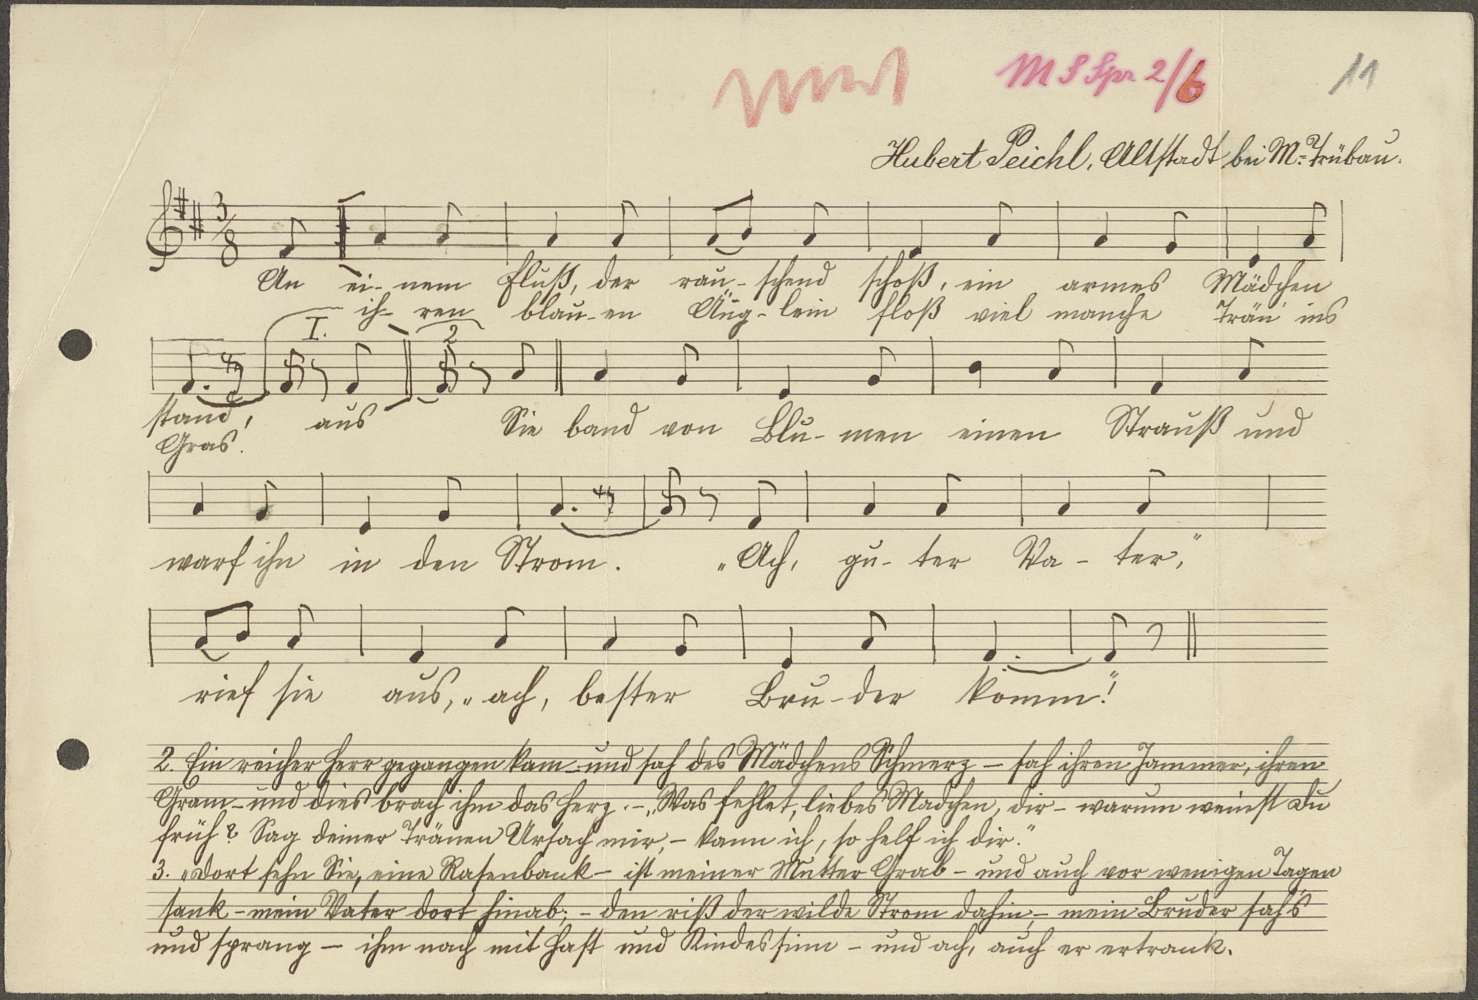 M S Spr 2/6
11
Hubert Peichl, Altstadt bei M.-Trübau.
3/8
An ei- nem Fluß, der rau- schend schoß, ein armes Mädchen
ih- ren blau- en Äug- lein floß viel manche Trän' ins
I. 2
stand, aus Sie band von Blu- men einen Strauß und
Gras.
warf ihn in den Strom. „Ach, gu- ter Va- ter,"
rief sie aus, „ach, bester Bru- der komm!"
2. Ein reicher Herr gegangen kam – und sah des Mädchens Schmerz – sah ihren Jammer, ihren
Gram – und dies brach ihm das Herz. – „Was fehlet, liebes Mädchen, dir – warum weinst Du
früh? Sag deiner Tränen Ursach mir, – kann ich, so helf ich dir."
3. „Dort sehn Sie, eine Rasenbank – ist meiner Mutter Grab – und auch vor wenigen Tagen
sank – mein Vater dort hinab; – den riß der wilde Strom dahin, – mein Bruder sah's
und sprang – ihm nach mit Hast und Kindessinn – und ach, auch er ertrank.